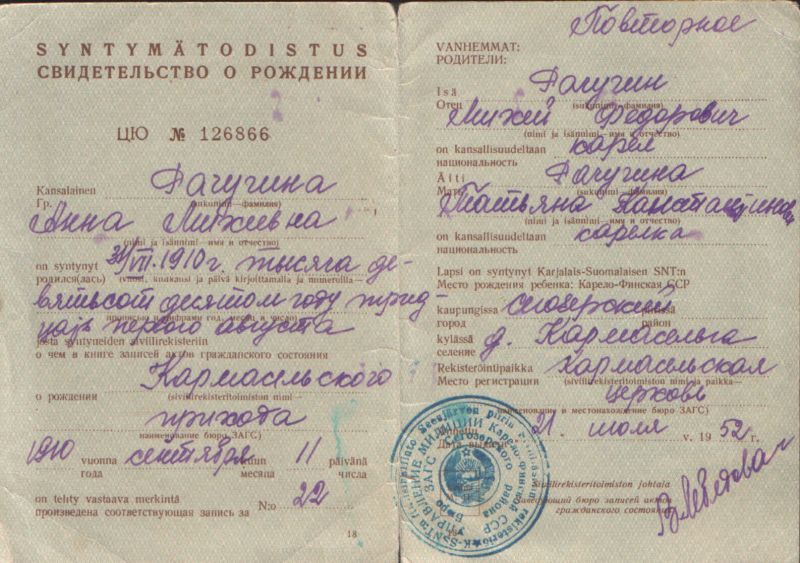 SYNTYMÄTODISTUS
СВИДЕТЕЛЬСТВО О РОЖДЕНИИ
ЦЮ № 126866
Kansalainen
Гр. Гачугина
(sukunimi—фамилия)
Анна Михеевна
(nimi ja isännimi—имя и отчество)
on syntynyt 31/VIII.1910 г. тысяча де-
родился(лась) (vuosi, kuukausi ja päivä kirjoittamalla ja numeroilla—
вятьсот десятом году трид-
прописью и цифрами год, месяц и число)
цать первого августа
josta syntyneiden siviilirekisteriin
о чем в книге записей актов гражданского состояния
Кармасельского
о рождении (siviilirekisteritoimiston nimi—
прихода
наименование бюро ЗАГС)
1910 vuonna сентября kuun 11 päivänä
года месяца числа
on tehty vastaava merkintä
произведена соответствующая запись за N:o 22
18
Повторное
VANHEMMAT:
РОДИТЕЛИ:
Isä
Отец Гачугин
(sukunimi—фамилия)
Михей Федорович
(nimi ja isännimi—имя и отчество)
on kansallisuudeltaan карел
национальность
Äiti Гачугина
Мать (sukunimi—фамилия)
Татьяна Константиновна
(nimi ja isännimi—имя и отчество)
on kansallisuudeltaan карелка
национальность
Lapsi on syntynyt Karjalais-Suomalaisen SNT:n
Место рождения ребенка: Карело-Финская ССР
kaupungissa сегозерский piirissä
город район
kylässä д. Кармасельга
селение
Rekisteröintipaikka Кармасельская
Место регистрации (siviilirekisteritoimiston nimi ja paikka—
церковь
наименование и местонахождение бюро ЗАГС)
21 июля v. 1952 г.
Siviilirekisteritoimiston johtaja
Заведующий бюро записей актов
гражданского состояния
УПРАВЛЕНИЕ МИЛИЦИИ Карело-Финской ССР
Бюро ЗАГС Сегозерского района